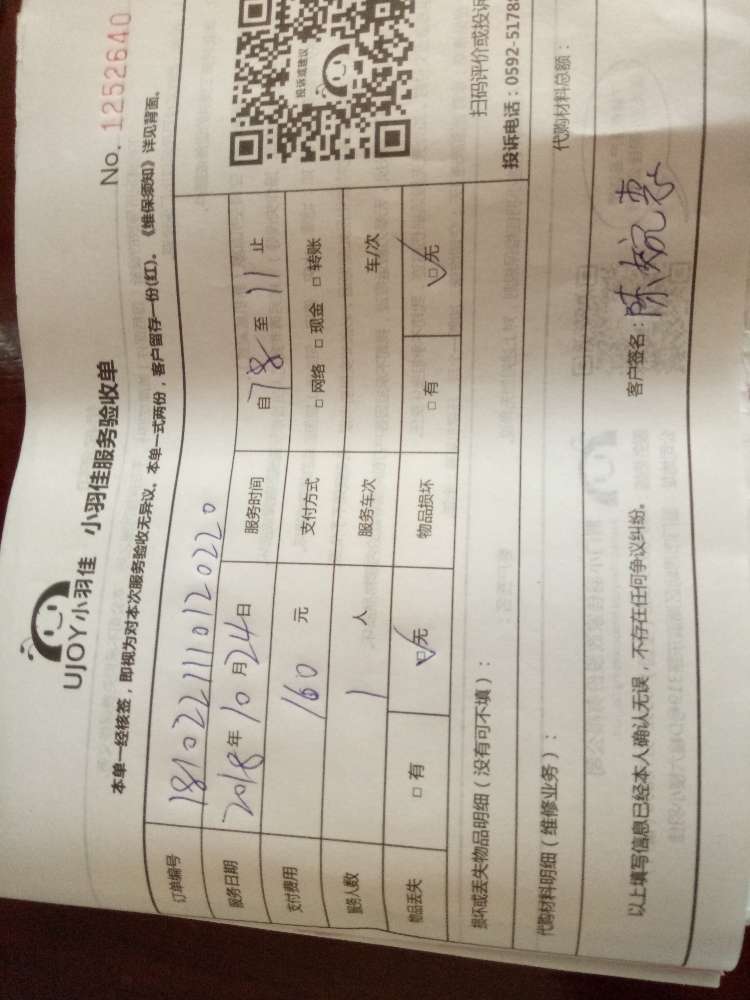 UJOY小羽佳 小羽佳服务验收单
No. 1252640
本单一经核签，即视为对本次服务验收无异议。本单一式两份，客户留存一份(红)。《维保须知》详见背面。
订单编号 18102211110120220
服务日期 2018年10月24日 服务时间 自78至11止
支付费用 160 元 支付方式 □网络 □现金 □转账
服务人数 1 人 服务车次 车/次
物品丢失 □有 ☑无 物品损坏 □有 ☑无
投诉或建议
扫码评价或投诉
投诉电话：0592-5178
损坏或丢失物品明细（没有可不填）：
代购材料明细（维修业务）： 代购材料总额：
以上填写信息已经本人确认无误，不存在任何争议纠纷。 客户签名：陈